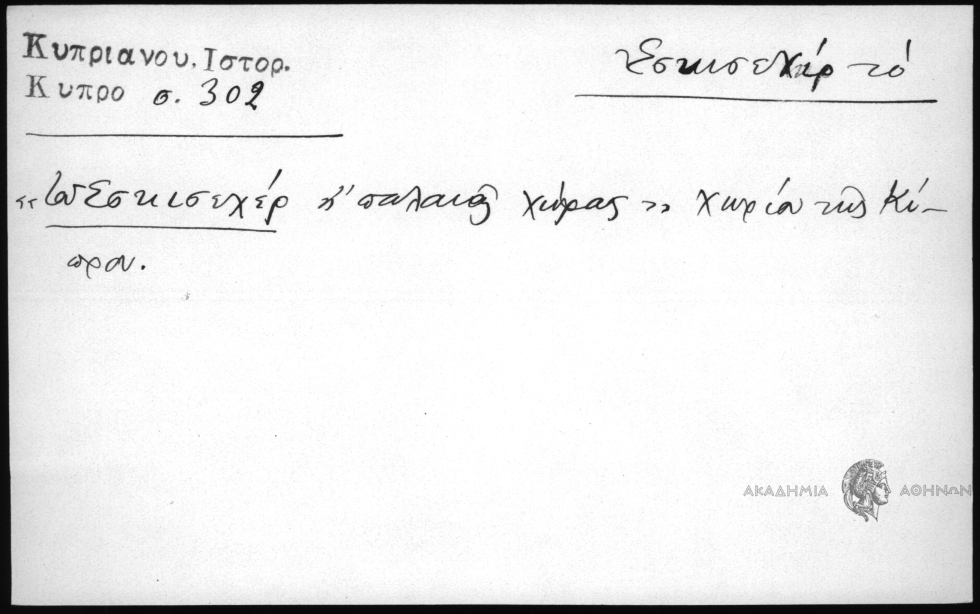 Κυπριανου, Ιστορ.
Κυπρο σ. 302
Ἐσκισεχέρ τό
«Ἐσκισεχέρ ἢ παλαιᾶς χώρας» χωρίον τῆς Κύ–
πρου.
ΑΚΑΔΗΜΙΑ ΑΘΗΝΩΝ